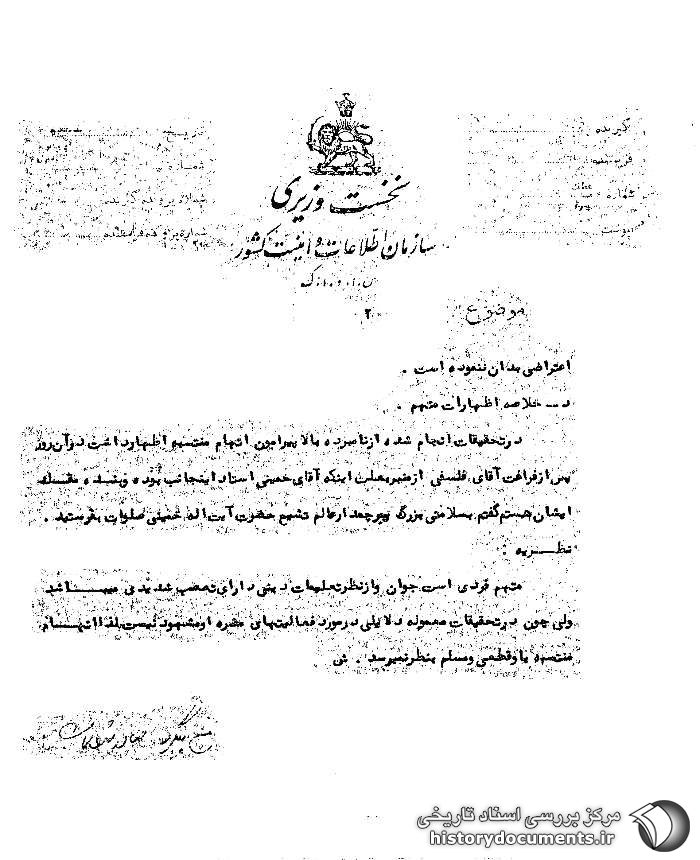 گیرنده
فرستنده
شماره
پیوست
تاریخ
شماره
شماره پرونده گیرنده
شماره پرونده فرستنده
نخست وزیری
سازمان اطلاعات و امنیت کشور
س.ا.و.ا.ک
۲
موضوع
اعتراضی بدان ننموده است .
د ـ خلاصه اظهارات متهم .
در تحقیقات انجام شده از نامبرده بالا پیرامون اتهام منتسبه اظهار داشت در آن روز
پس از فراغت آقای فلسفی از منبر بعلت اینکه آقای خمینی استاد اینجانب بوده و بنده مقلد
ایشان هستم گفتم بسلامتی بزرگ پرچمدار عالم تشیع حضرت آیت اله خمینی صلوات بفرستید .
نظریه :
متهم فردی است جوان و از نظر تعلیمات دینی دارای تعصب شدیدی میباشد
ولی چون در تحقیقات معموله دلایلی در مورد فعالیتهای مضره او مشهود نیست لذا اتهام
منتسبه باو قطعی و مسلم بنظر نمیرسد . ش
مرکز بررسی اسناد تاریخی
historydocuments.ir